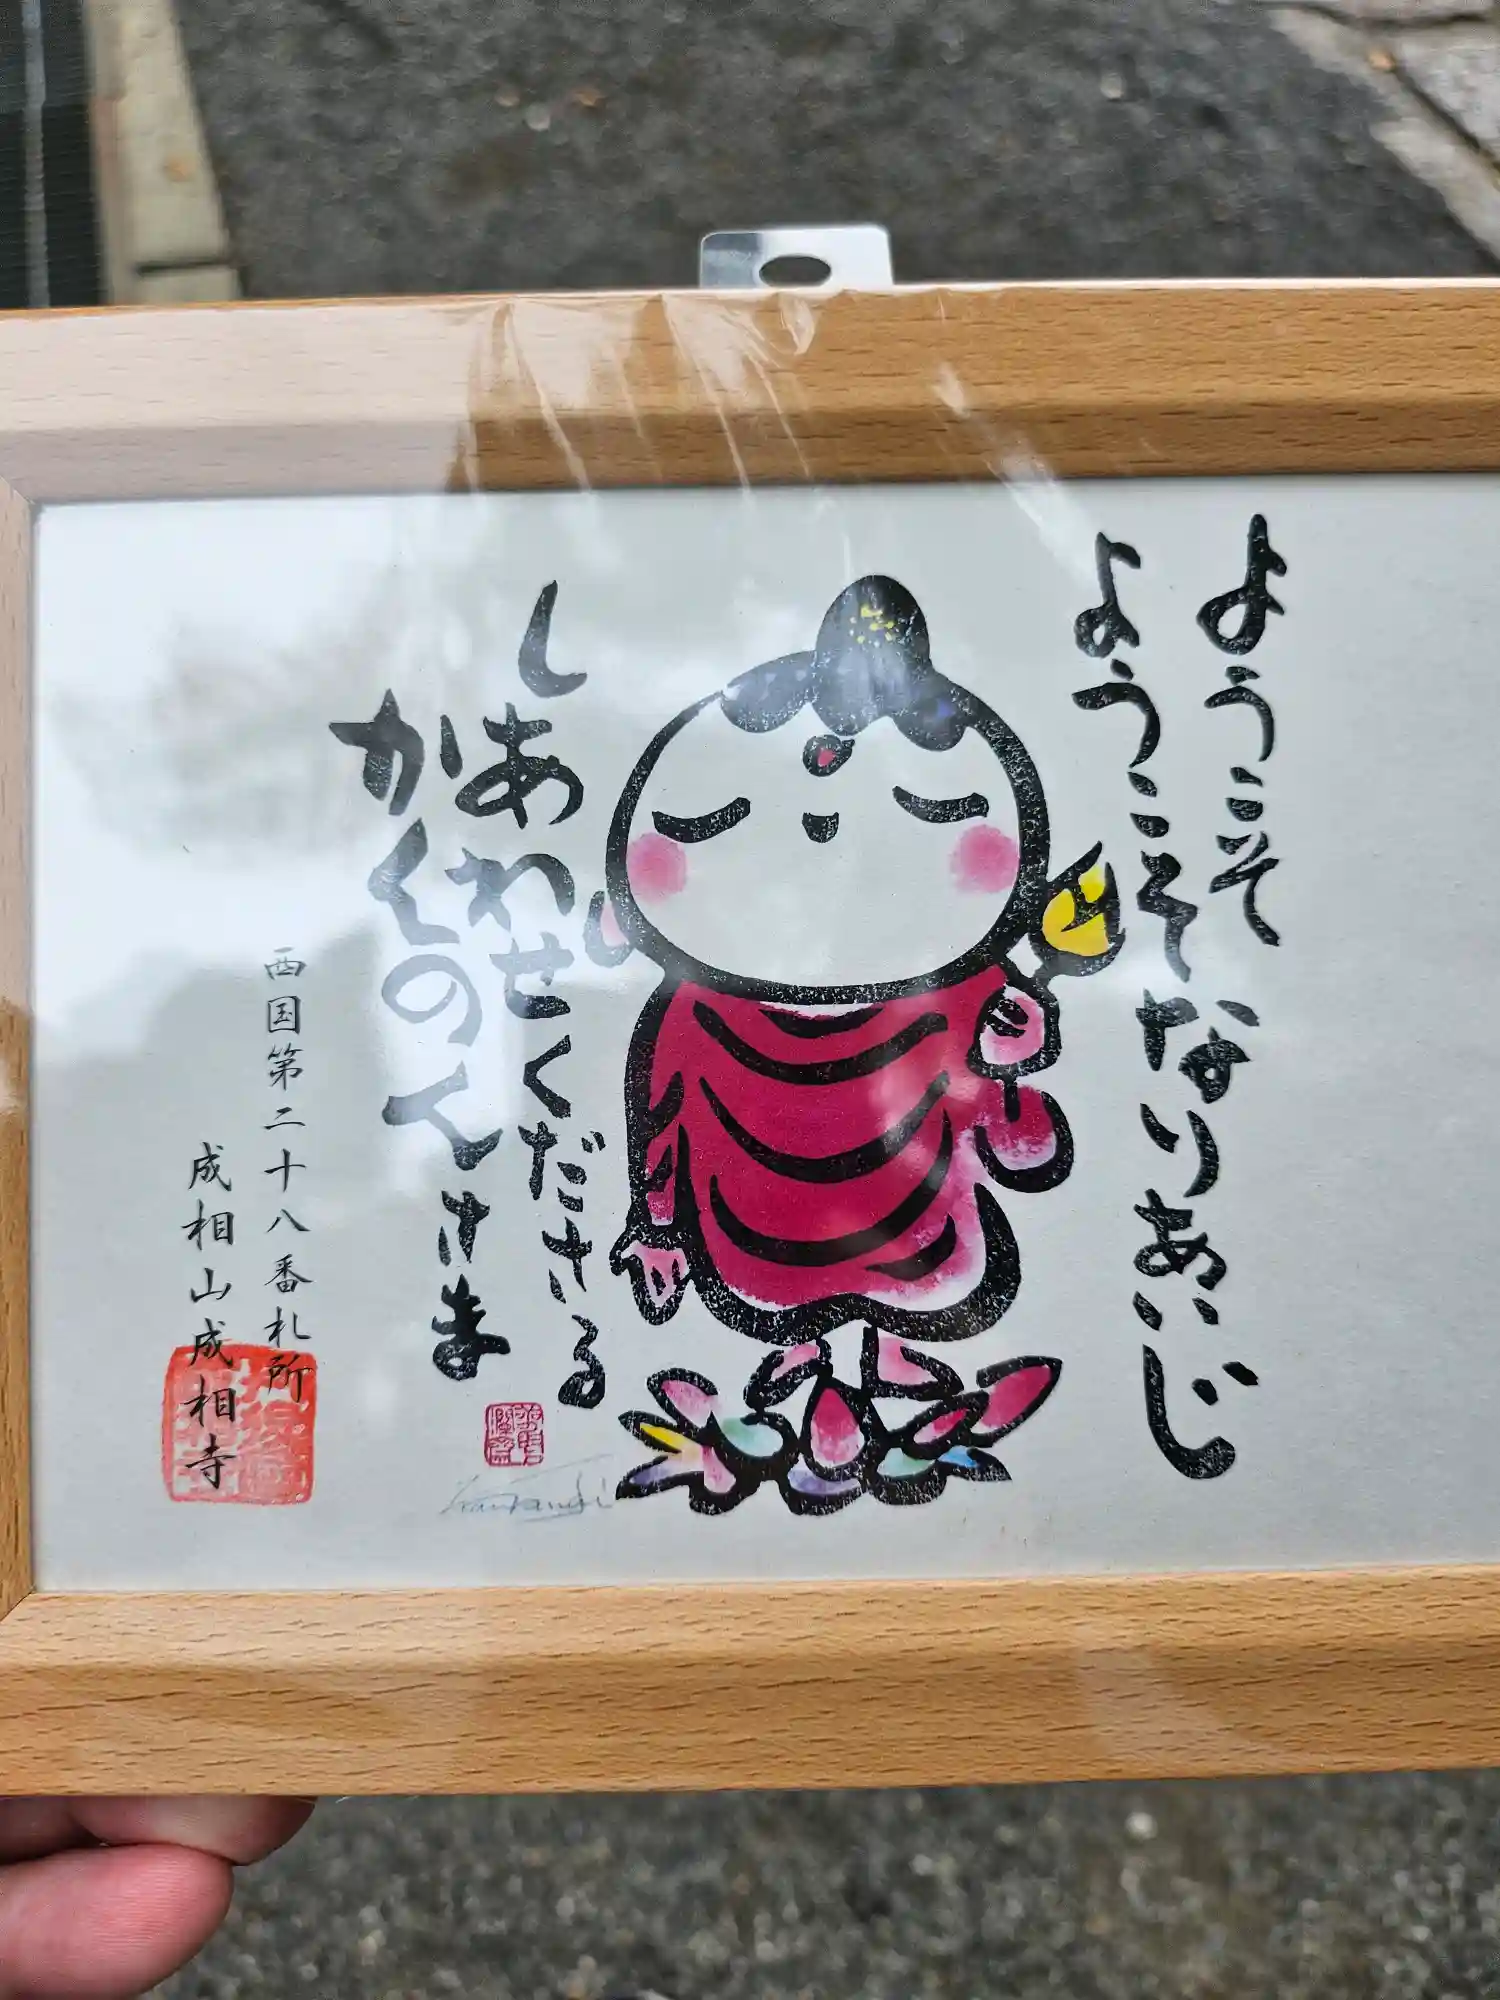 ようこそ
ようこそ
なりあいじ
しあわせくださる
かんのんさま
西国第二十八番札所
成相山成相寺